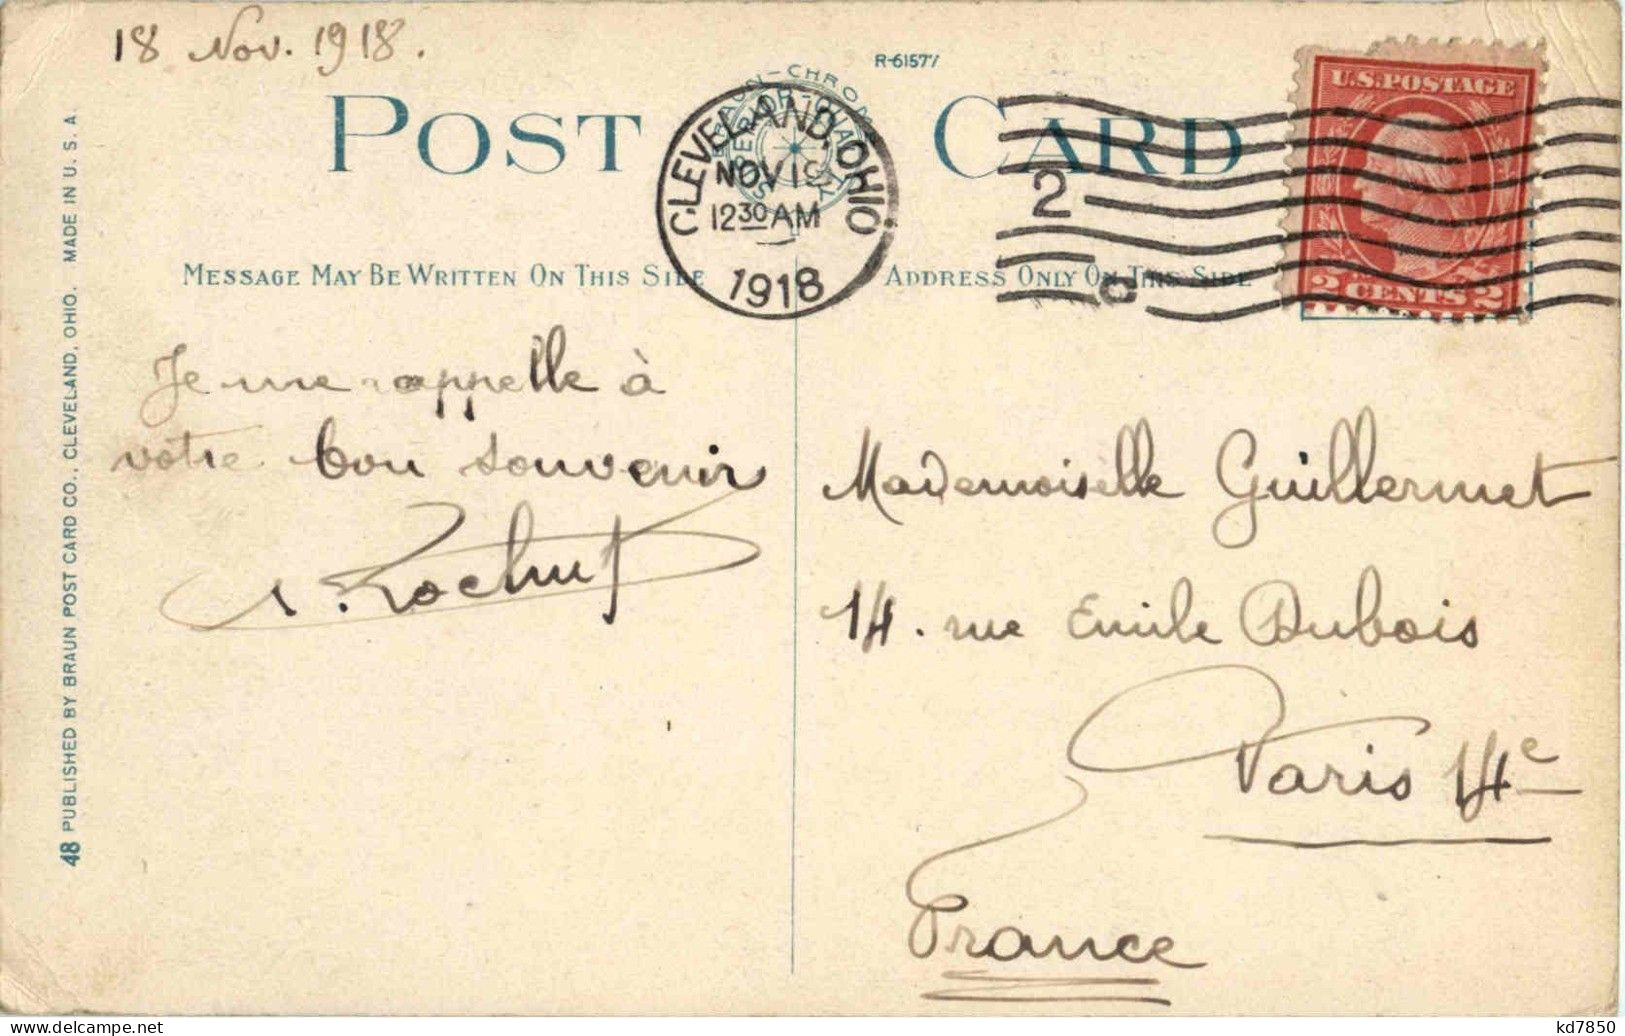 18 Nov. 1918.
R-61577
POST CARD
CLEVELAND, OHIO
NOV 19
12 30 AM
1918
2
U.S. POSTAGE
2 CENTS 2
MESSAGE MAY BE WRITTEN ON THIS SIDE
ADDRESS ONLY ON THIS SIDE
Je me rappelle à
votre bon souvenir
Mademoiselle Guillermet
14. rue Emile Dubois
Paris 14e
France
48 PUBLISHED BY BRAUN POST CARD CO., CLEVELAND, OHIO. MADE IN U. S. A.
kd7850